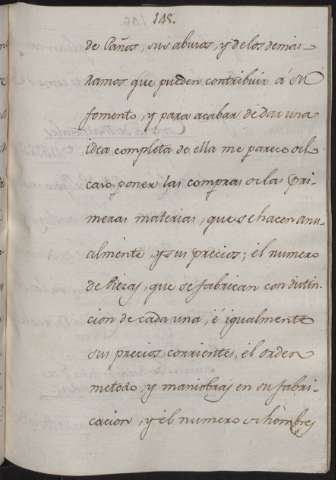 148.
de Paños, sus abusos, y de los demas
Ramos que pueden contribuir à su
fomento, y para acabar de dar una
idea completa de ella me parece del
caso poner las compras de las pri-
meras materias, que se hacen anu-
almente, y sus precios; èl numero
de Piezas, que se fabrican con distin-
cion de cada una, è igualmente
sus precios corrientes, èl orden
metodo, y maniobras en su fabri-
cacion, y èl numero de hombres